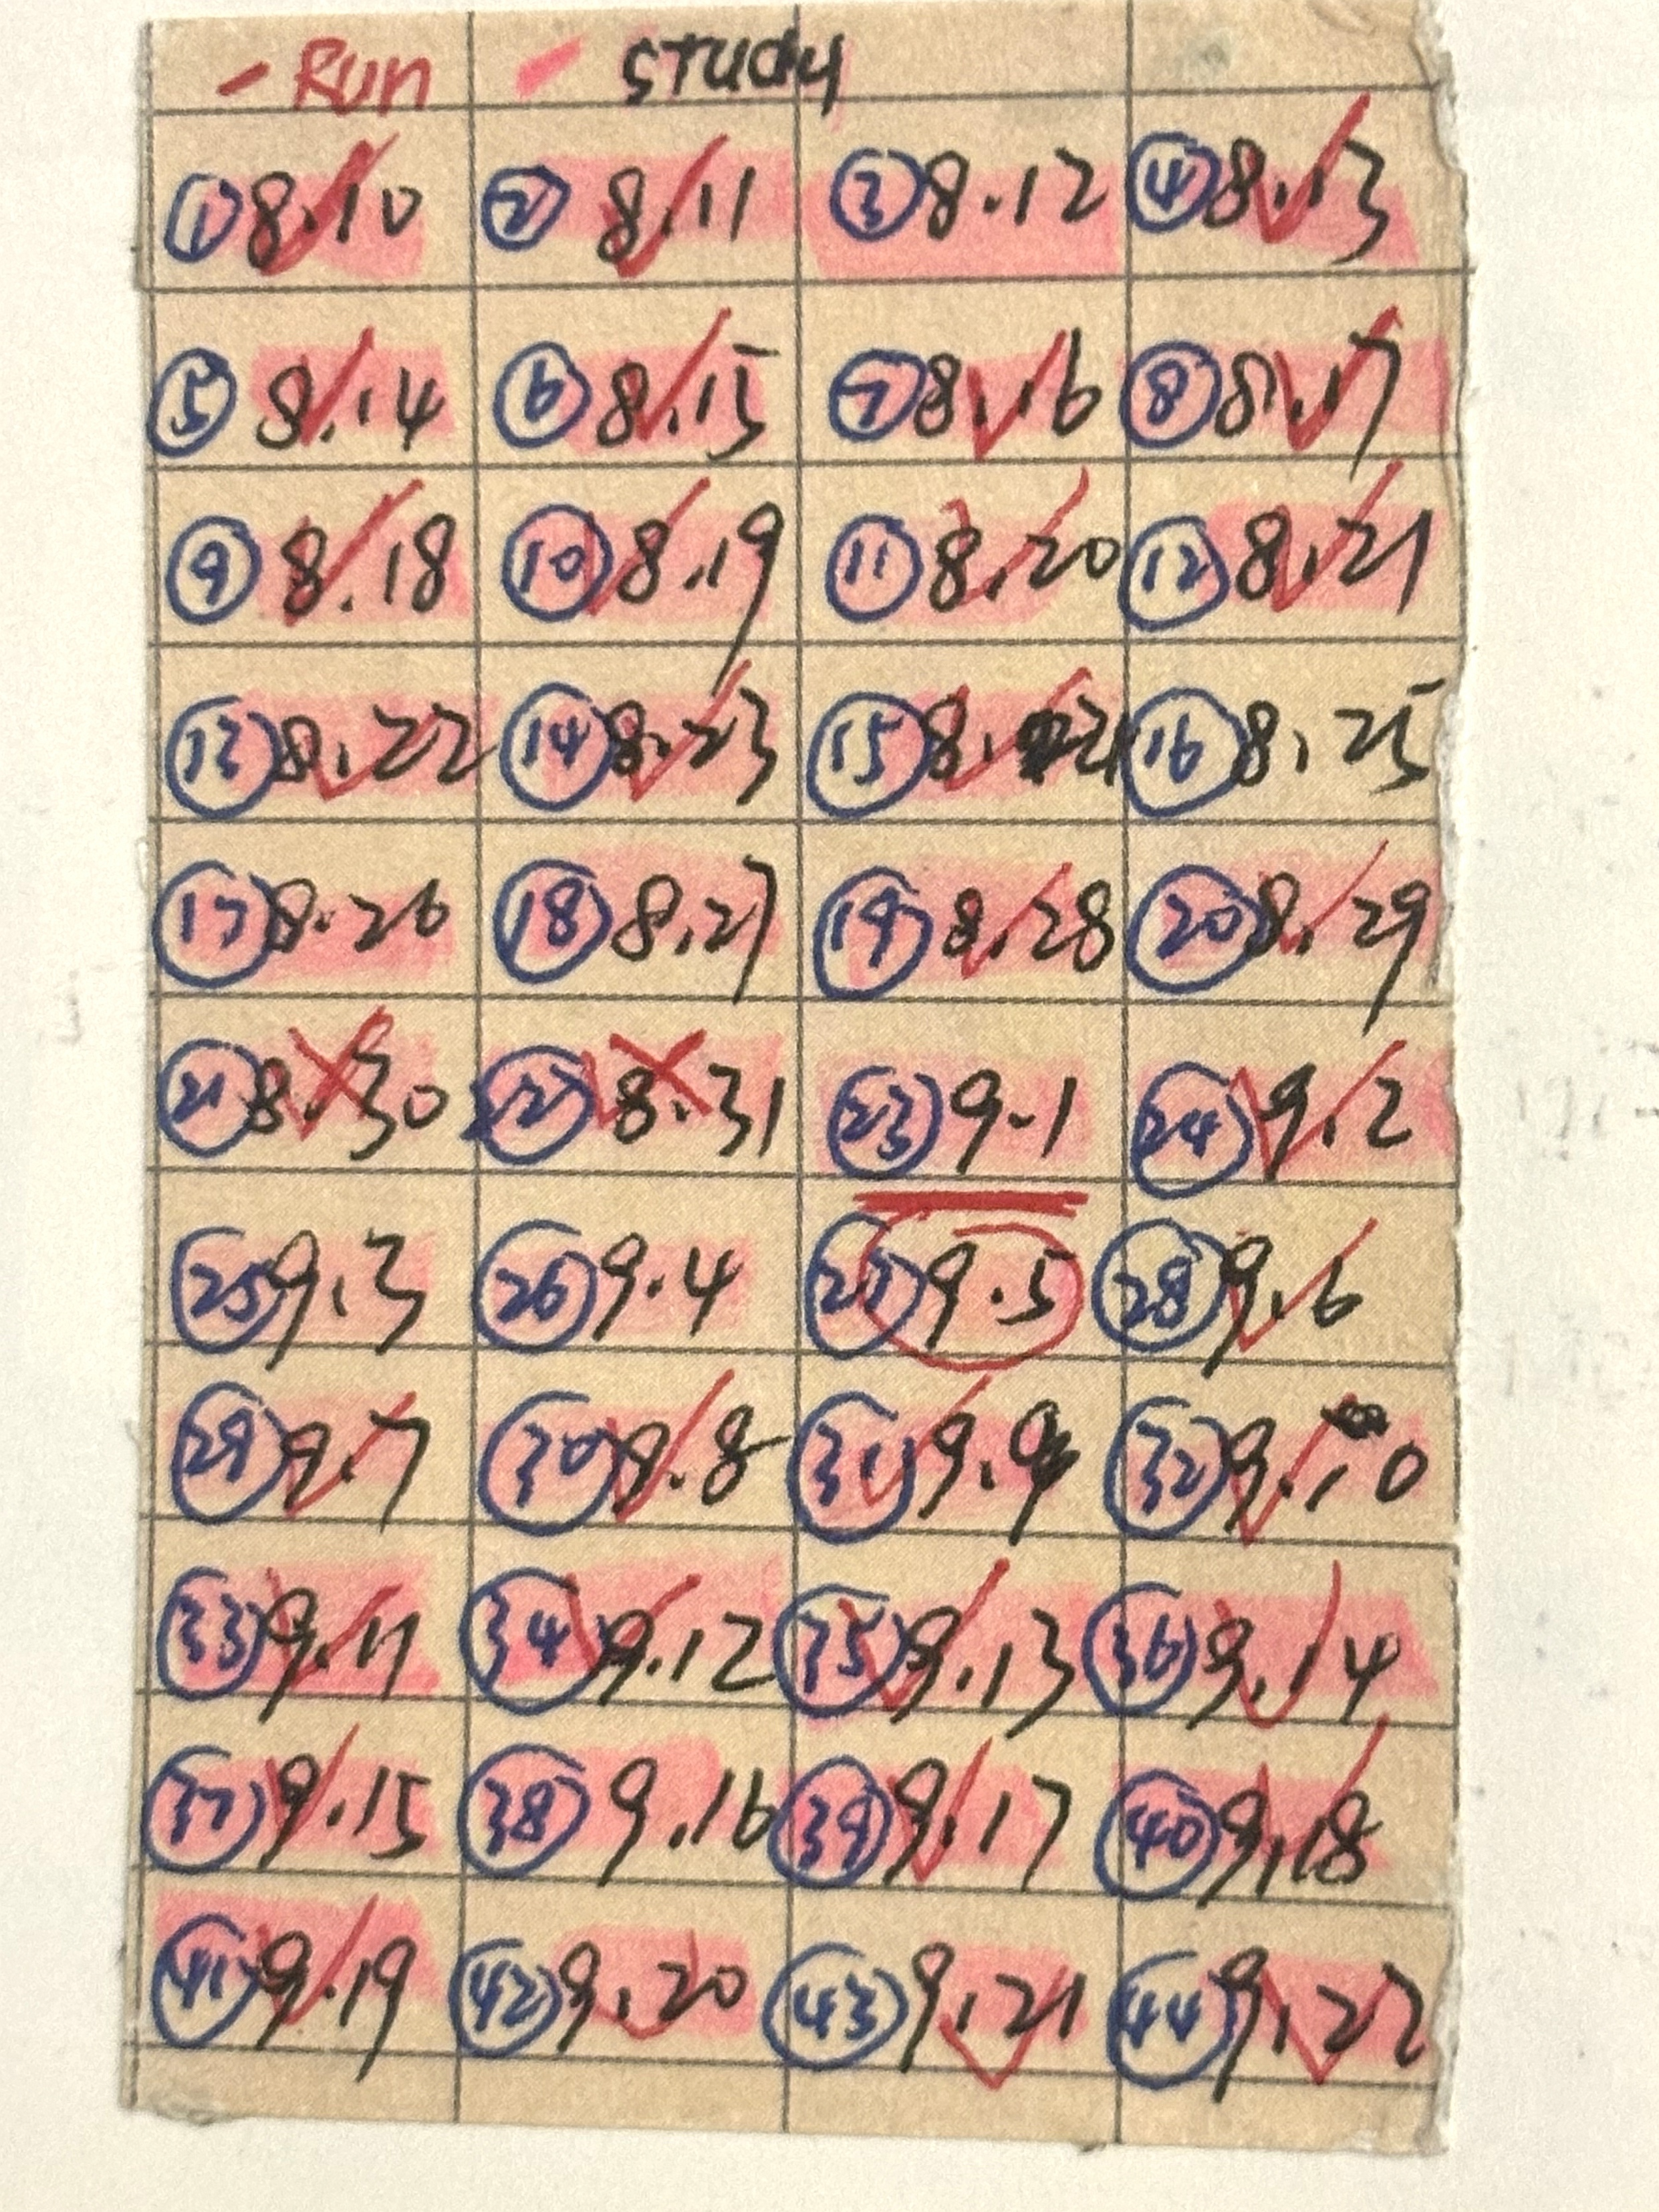 - Run - study
① 8.10 ② 8.11 ③ 8.12 ④ 8.13
⑤ 8.14 ⑥ 8.15 ⑦ 8.16 ⑧ 8.17
⑨ 8.18 ⑩ 8.19 ⑪ 8.20 ⑫ 8.21
⑬ 8.22 ⑭ 8.23 ⑮ 8.24 ⑯ 8.25
⑰ 8.26 ⑱ 8.27 ⑲ 8.28 ⑳ 8.29
㉑ 8.30 ㉒ 8.31 ㉓ 9.1 ㉔ 9.2
㉕ 9.3 ㉖ 9.4 ㉗ 9.5 ㉘ 9.6
㉙ 9.7 ㉚ 8.8 ㉛ 9.9 ㉜ 9.10
㉝ 9.11 ㉞ 9.12 ㉟ 9.13 ㊱ 9.14
㊲ 9.15 ㊳ 9.16 ㊴ 9.17 ㊵ 9.18
㊶ 9.19 ㊷ 9.20 ㊸ 9.21 ㊹ 9.22